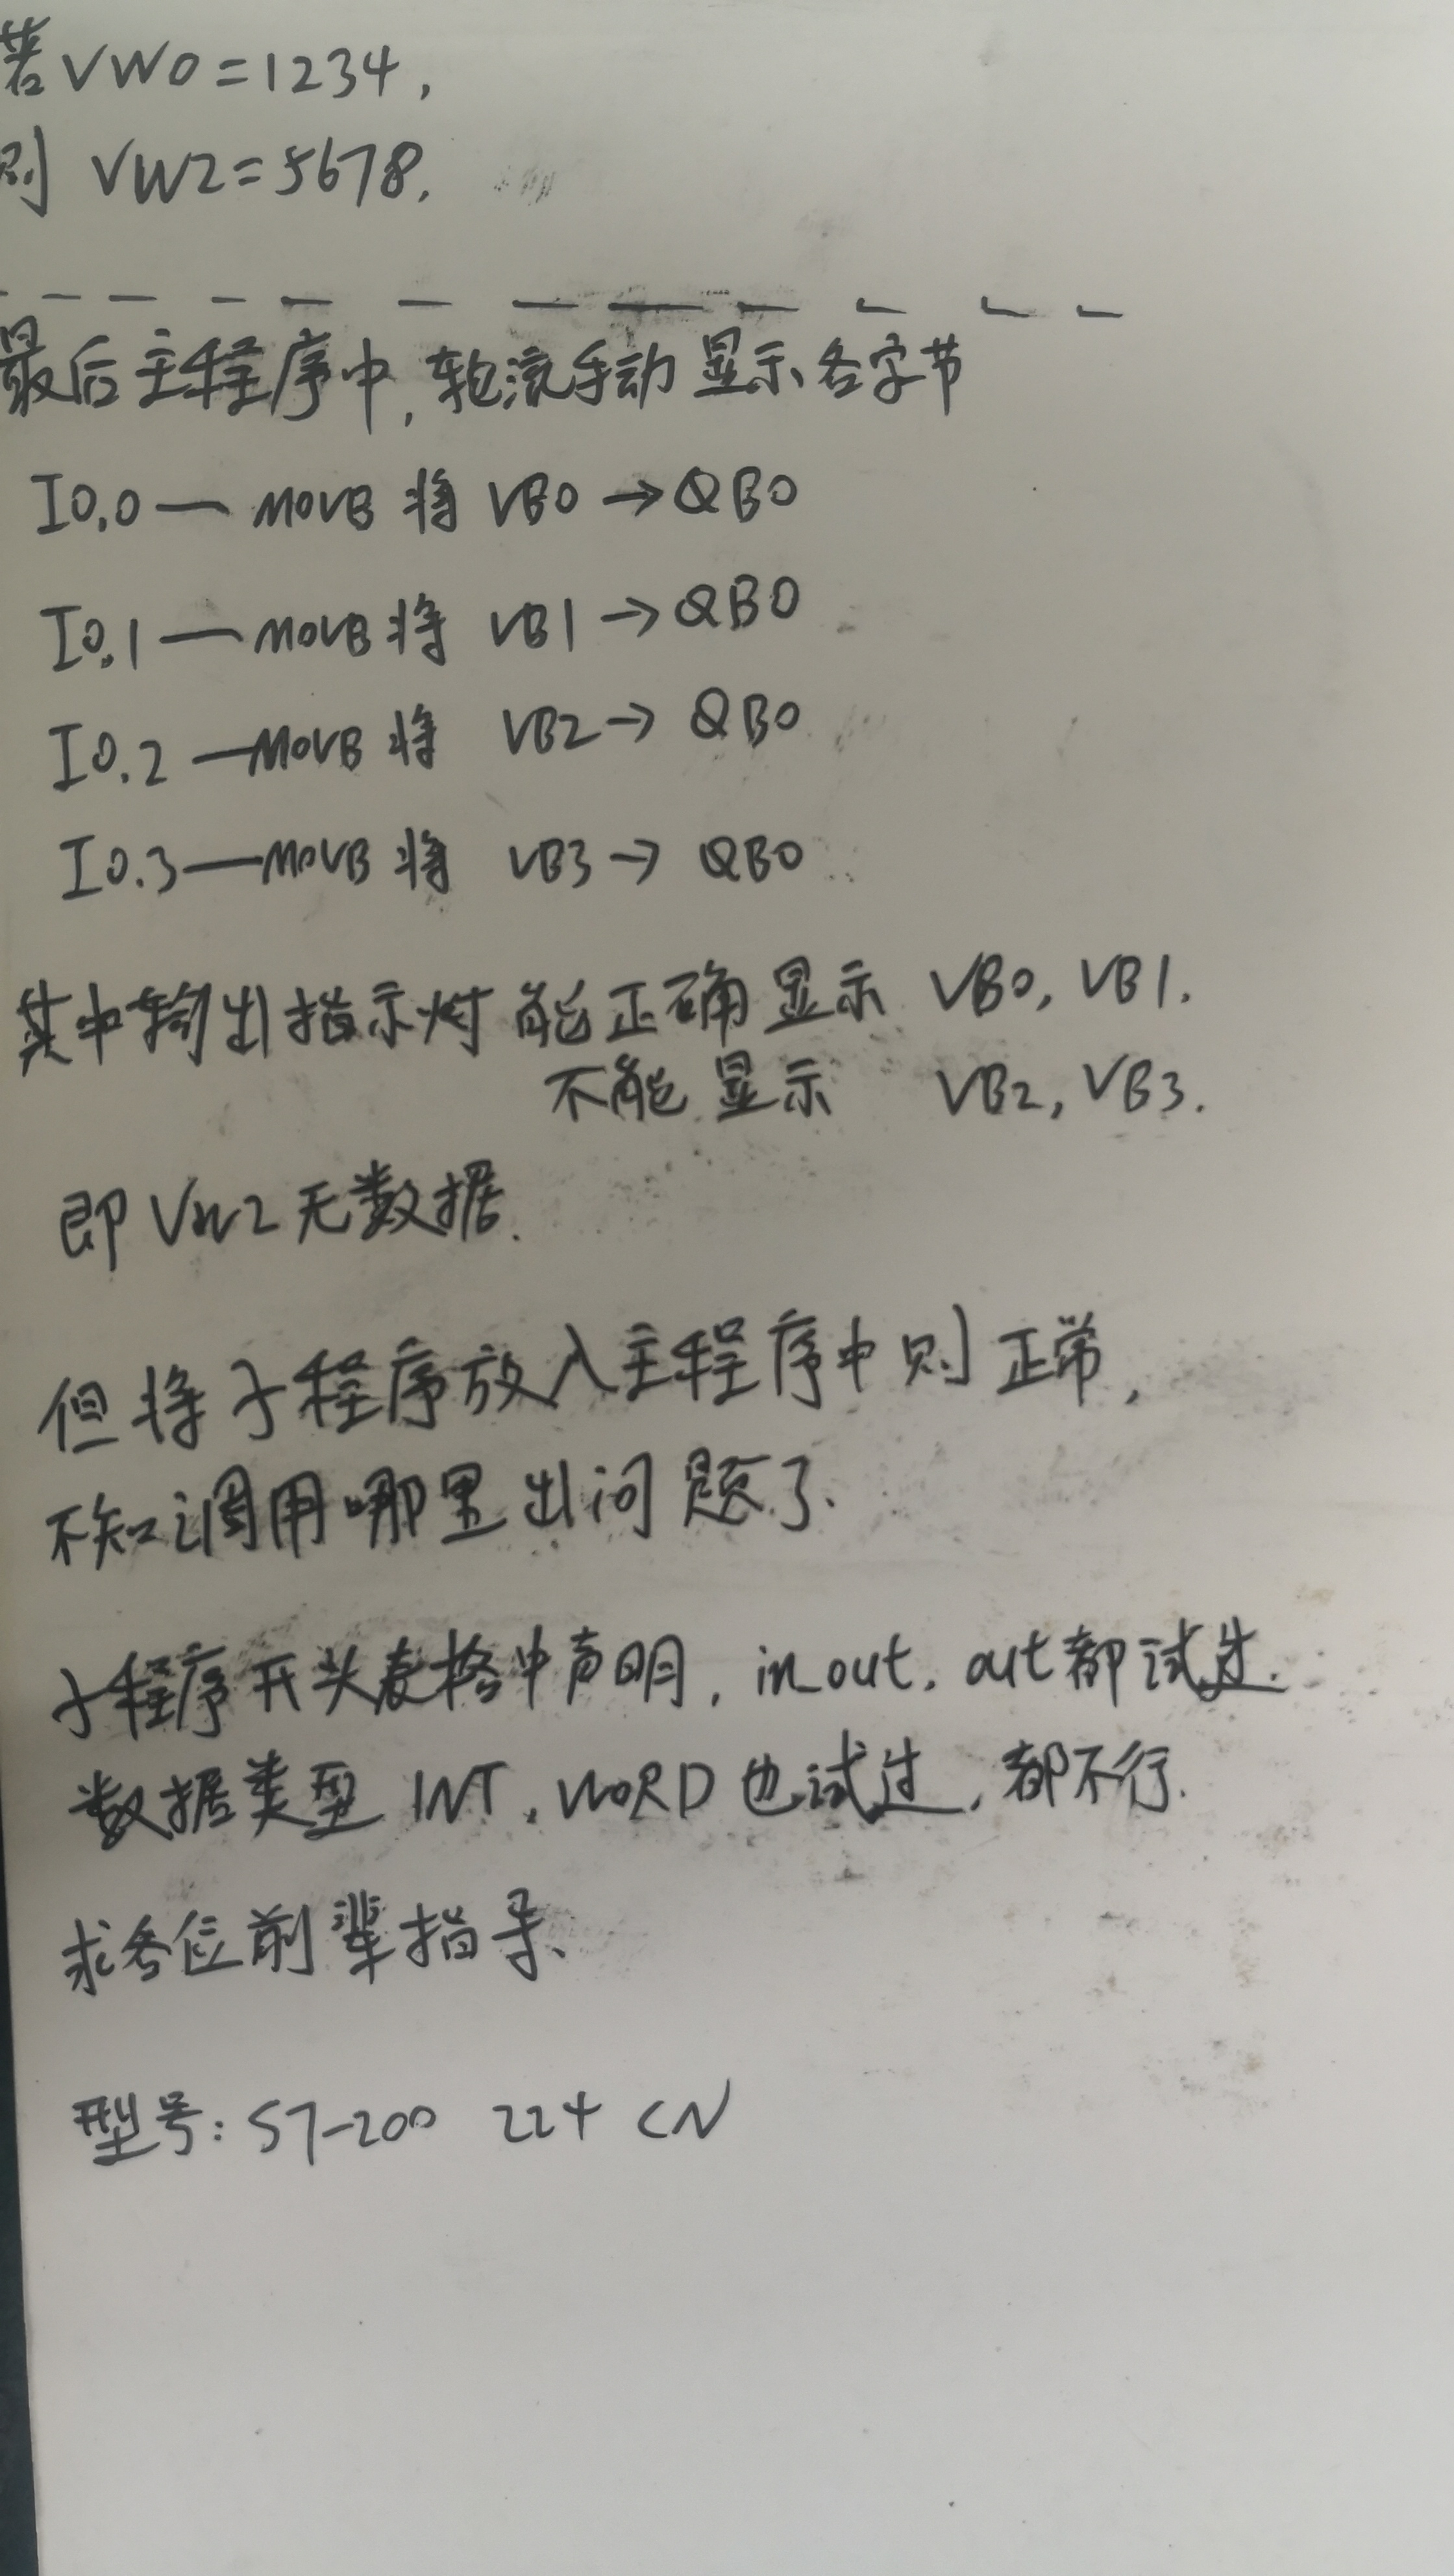 若VW0=1234,
则 VW2=5678.
最后主程序中,轮流手动显示各字节
I0.0—MOVB 将 VB0→QB0
I0.1—MOVB将 VB1→QB0
I0.2—MOVB 将 VB2→QB0
I0.3—MOVB 将 VB3→QB0
其中输出指示灯能正确显示 VB0,VB1.
不能显示 VB2,VB3.
即VW2无数据.
但将子程序放入主程序中则正常,
不知调用哪里出问题了.
子程序开头表格中声明,in_out,out都试过.
数据类型 INT,WORD也试过,都不行.
求各位前辈指导、
型号:S7-200 224 CN